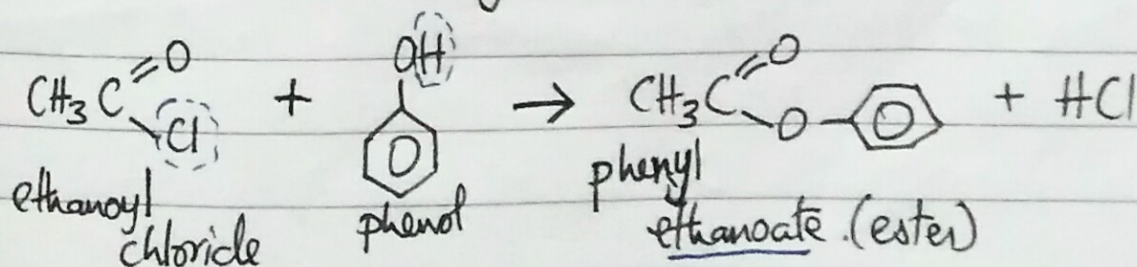 CH₃C=O–Cl + OH → CH₃C=O–O– + HCl
ethanoyl chloride
phenol
phenyl ethanoate (ester)